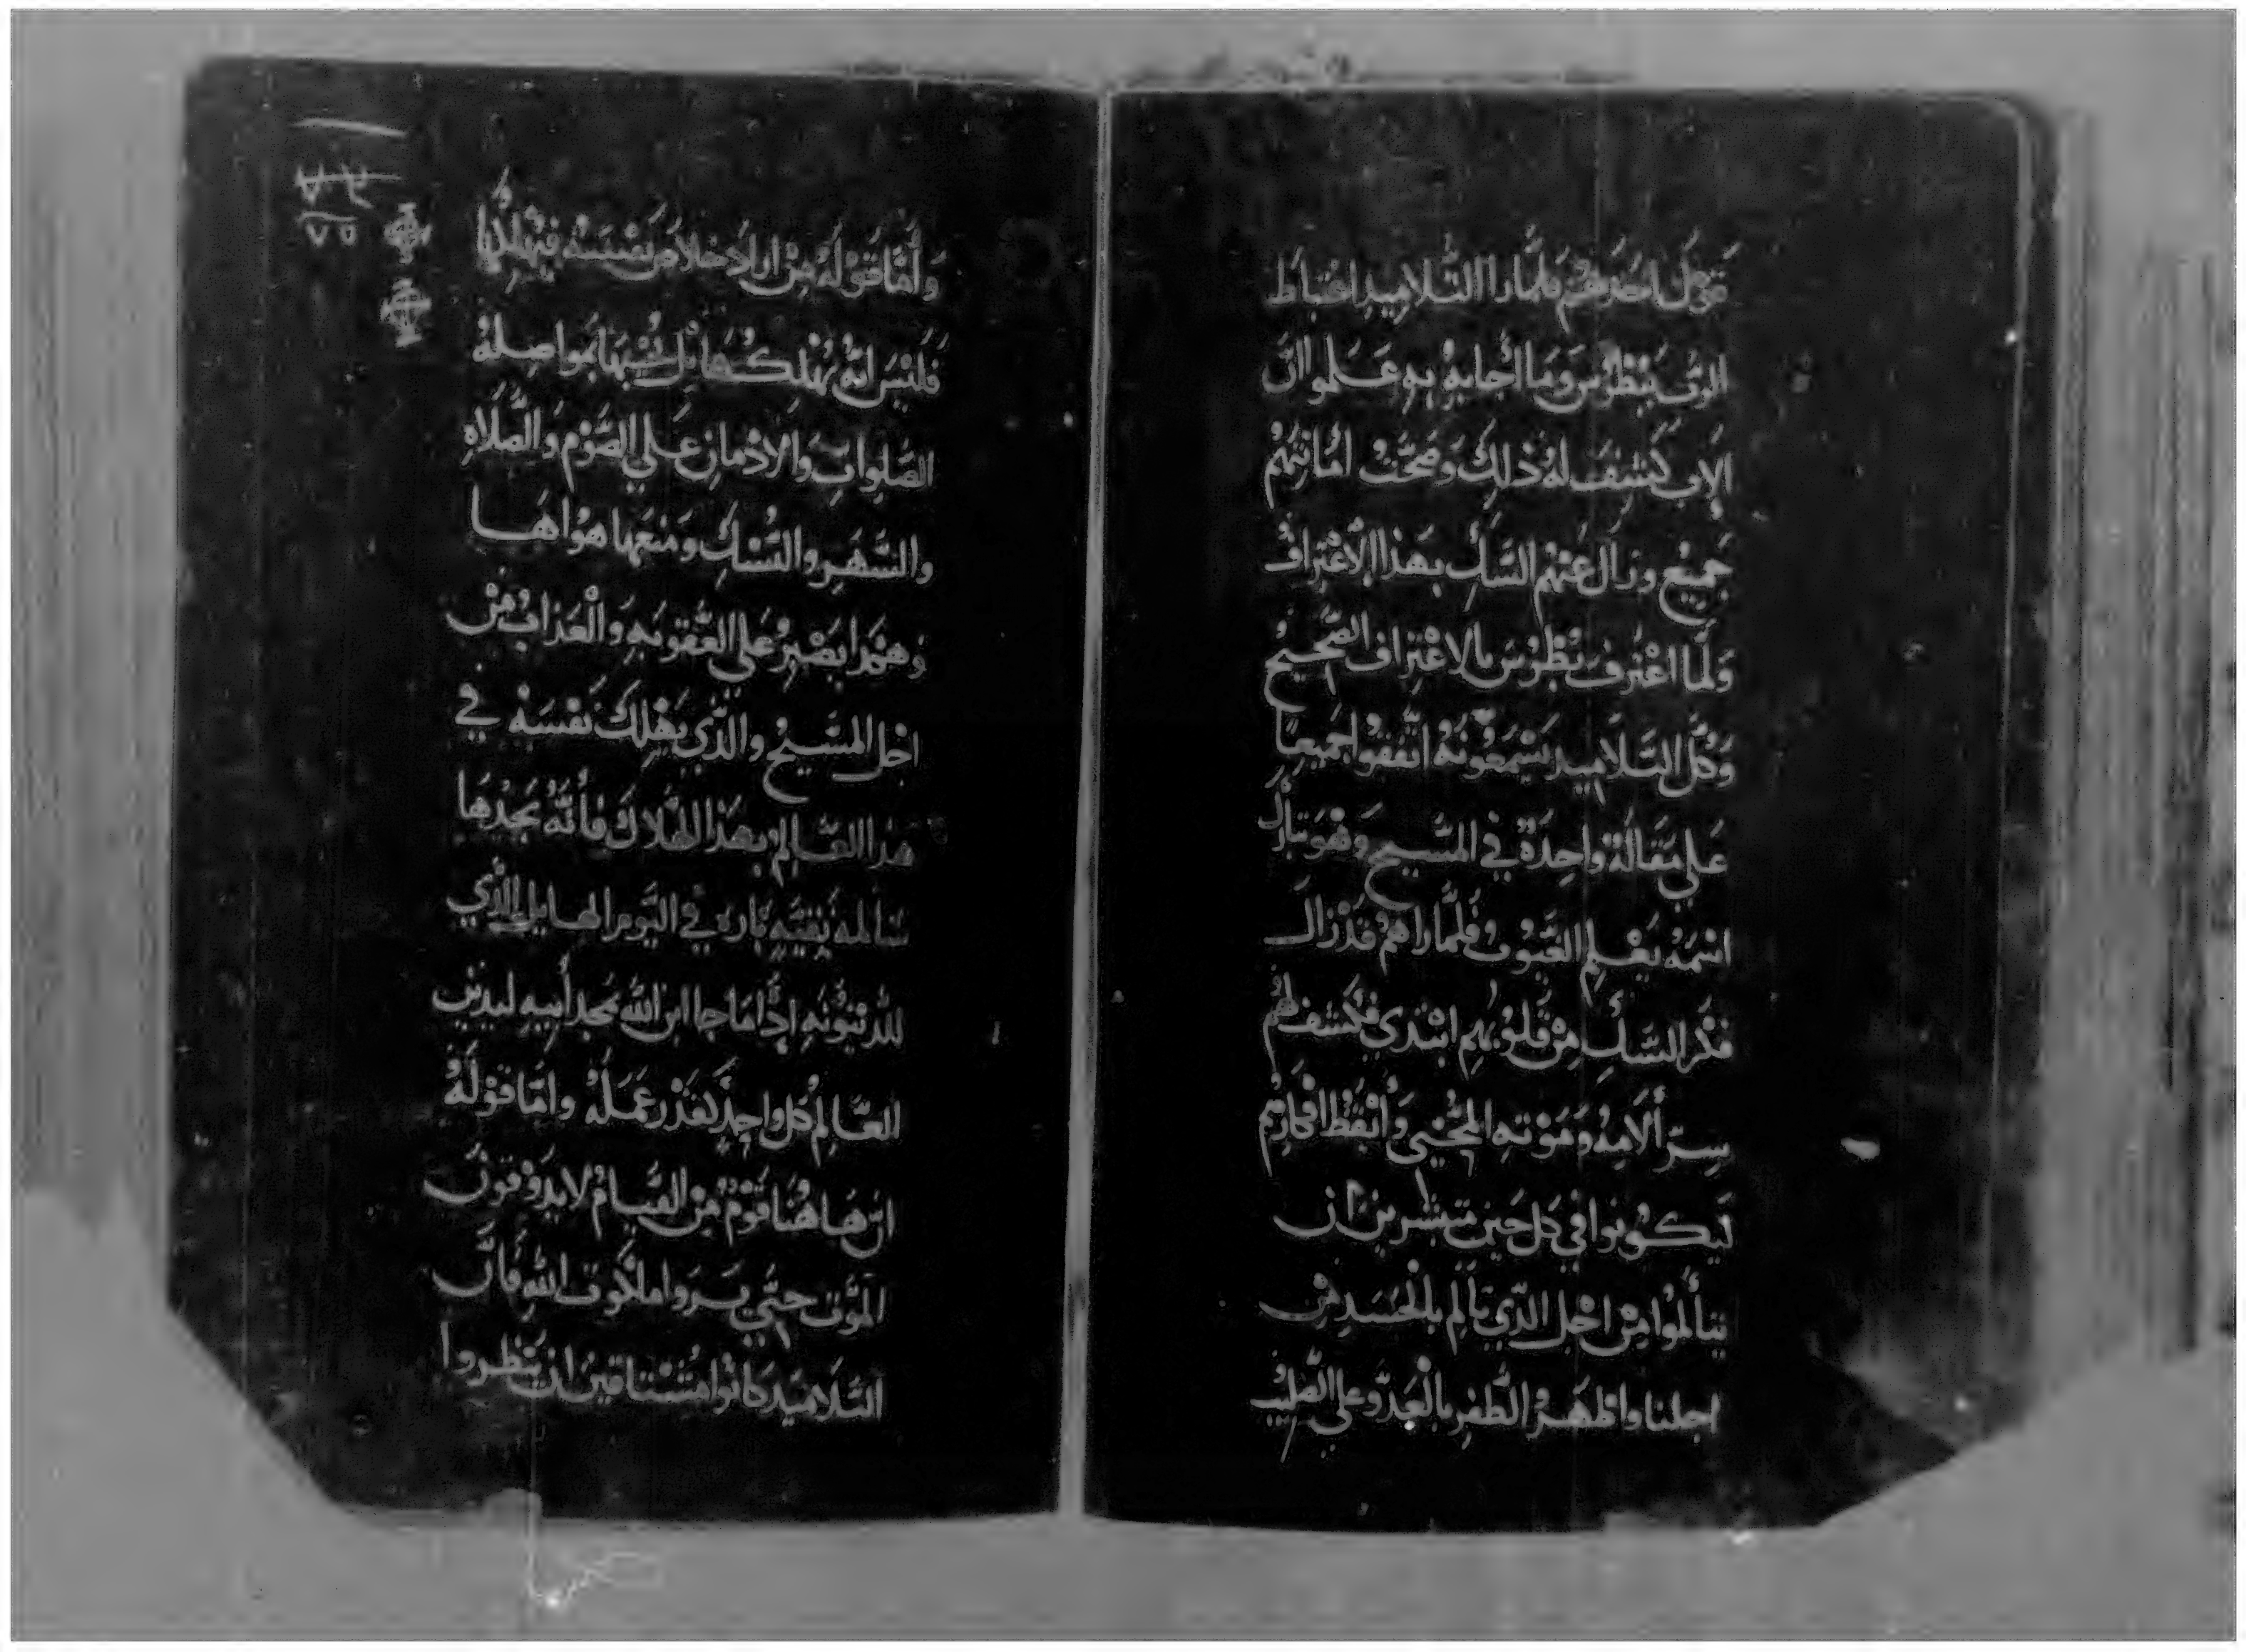 قول احدهم فلما راا التلاميد اغتباط
الرب ببطرس وما اجابه به علموا ان
الاب كشف له ذلك وصحت امانتهم
جميع وزال عنهم الشك بهذا الاعتراف
ولما اعترف بطرس بالاعتراف الصحيح
وكل التلاميد يسمعونه اتفقوا جميعا
علي مقالة واحدة في المسيح وهو تبارك
اسمه يعلم الغيوب فلما راهم قد زال
فكر الشك من قلوبهم ابتدي فكشف لهم
سر ألامه وموته المحيي وأيقظ افكارهم
ليكونوا في كل حين متبشرين ان
يتألموا من اجل الدي تالم بالجسد من
اجلنا واظهر الظفر بالعدو علي الصليب
وأما قوله من اراد خلاص نفسه فيهلكها
فليس انه يهلكها بل يتعبها بمواصلة
الصلوات والادمان علي الصوم والصلاة
والسهر والنسك ومنعها هواها
وهمرا يصبر علي العقوبه والعذاب من
اجل المسيح والذي يهلك نفسه في
هدا العالم بهذا الهلاك فأنه يجدها
سالمه نقيه باره في اليوم الهايل الذي
للدينونه إذا ما جا ابن الله بمجد أبيه ليدين
العالم كل واحد كقدر عمله وأما قوله
ان هاهنا قوم من القيام لا يدوقون
الموت حتي يروا ملكوت الله فأن
التلاميد كانوا مشتاقين ان ينظروا